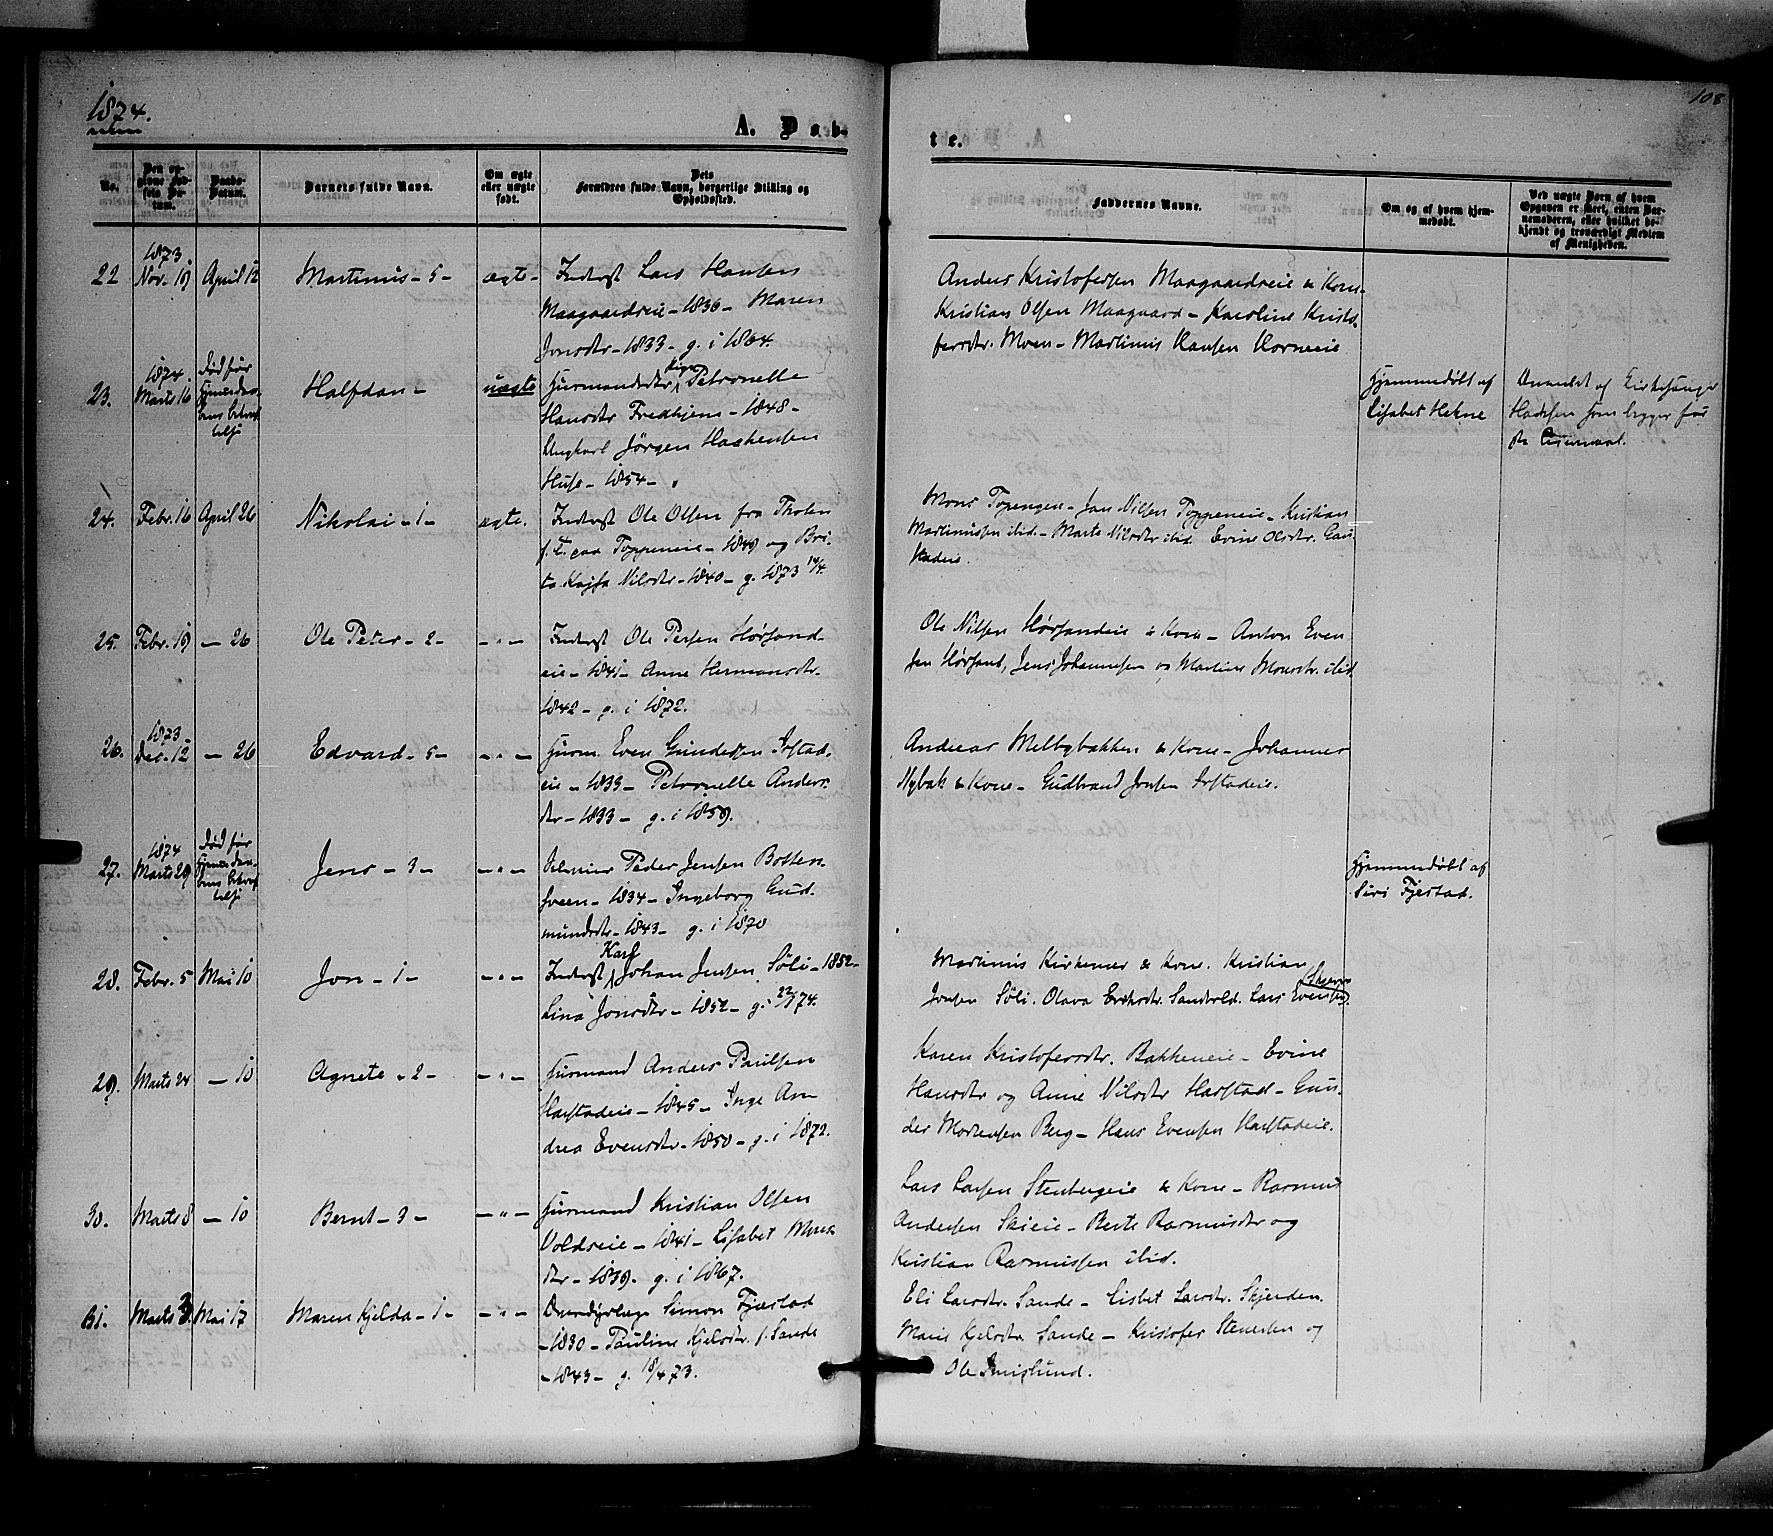 1874.
108
A. Dåb-
te.
No.
Den opgivne Fødsels Datum.
Daabs-Datum.
Barnets fulde Navn.
Om ægte eller uægte født.
Dets Forældres fulde Navn, borgerlige Stilling og Opholdssted.
Faddernes Navne.
Om og af hvem hjemmedøbt.
Ved uægte Børn af hvem Opgaven er skeet, enten Barnemoderen, eller hvilket bekjendt og troværdigt Medlem af Menigheden.
22 1873 Nov. 19 April 12 Martinus - 5 - ægte - Inderst Lars Hansen
Maagaardseie - 1836 - Maren
Jonsdtr - 1833 - g. i 1864.
Anders Kristofersen Maagaardseie & Kone
Kristian Olsen Maagaard - Karoline Kristo-
fersdtr. Moen - Martinus Hansen Horneeie
23. 1874. Marts 16 død før Hjemmedaabens bekræftelse Halfdan - uægte Huusmandsdtr Pige Petronelle
Hansdtr Fredhjem - 1848 -
Ungkarl Jörgen Haakensen
Huse - 1854 -
Hjemmedøbt af
Lisabet Hekne
Anmeldt af Kirkesanger
24. Febr. 16 April 26 Nikolai - 1 - ægte. Inderst Ole Olsen fra Thoten
f. T. paa Toppeneie - 1849 og Bri-
ta Kajsa Nilsdtr - 1840 - g. 1873 14/4.
Mons Topengen - Jan Nilsen Toppeneie - Kristian
Martinussen ibid. - Marte Nilsdtr ibid Evine Olsdtr. Gau-
stadeie.
25. Febr. 19 - 26 Ole Peter - 2 - - " - Inderst Ole Persen Hørsand-
eie - 1841 - Anne Hermansdtr.
1842 - g. i 1872.
Ole Nilsen Hørsandeie & Kone - Anton Even
sen Hørsand, Jens Johannesen og Martine Monsdtr. ibid
26. 1873 - Dec. 12 - 26 Edvard - 5 - - " - Husm. Even Gundersen
eie - 1833 - Petronelle Anders-
dtr - 1833 - g. i 1859.
Andreas Melbybakken & Kone - Johannes
Nybak & Kone - Gudbrand Jensen
27. 1874 Marts 29 død før Hjemmedaabens bekræftelse Jens - 3 - - " - Selveier Peder Jensen Botten
sveen - 1834 - Ingeborg Gud-
mundsdtr - 1843 - g. i 1870
Hjemmedøbt af
Siri Fjestad.
28. Febr. 5 Mai 10 Jon - 1 - - " - Inderst Karl Johan Jensen Søli - 1852 -
Lina Jonsdtr - 1852 - g. 22/1 74.
Martinus Kirkemoe & Kone. Kristian
Jonsen Søli. Olava Eriksdtr. Sandvold. Lars Evensen.
29. Marts 24 - 10 Agnete - 2 - - " - Husmand Anders Paulsen
Harstadeie - 1845 - Inge An-
drea Evensdtr - 1850 - g. i 1872.
Karen Kristofersdtr. Bakkeneie - Evine
Hansdtr og Anne Nilsdtr Harstad - Gun-
der Mortensen Berg - Hans Evensen Harstadeie.
30. Marts 8 - 10 Bernt - 3 - - " - Husmand Kristian Olsen
Voldseie - 1841 - Lisabet Mons
dtr - 1839. g. i 1867.
Lars Larsen Stenbergeie & Kone - Rasmus
Andersen Skieie - Berte Rasmusdtr og
Kristian Rasmussen ibid.
31. Marts 3. Mai 17 Maren Kjelda - 1 - - " - Simon Fjæstad
- 1830 - Pauline Kjelsdtr. f. Sande
- 1843 - g. 18/4 73.
Eli Larsdtr. Sande - Lisbet Larsdtr. Skjerden.
Marie Kjelsdtr Sande - Kristofer Stenersen og
Ole Smislund.